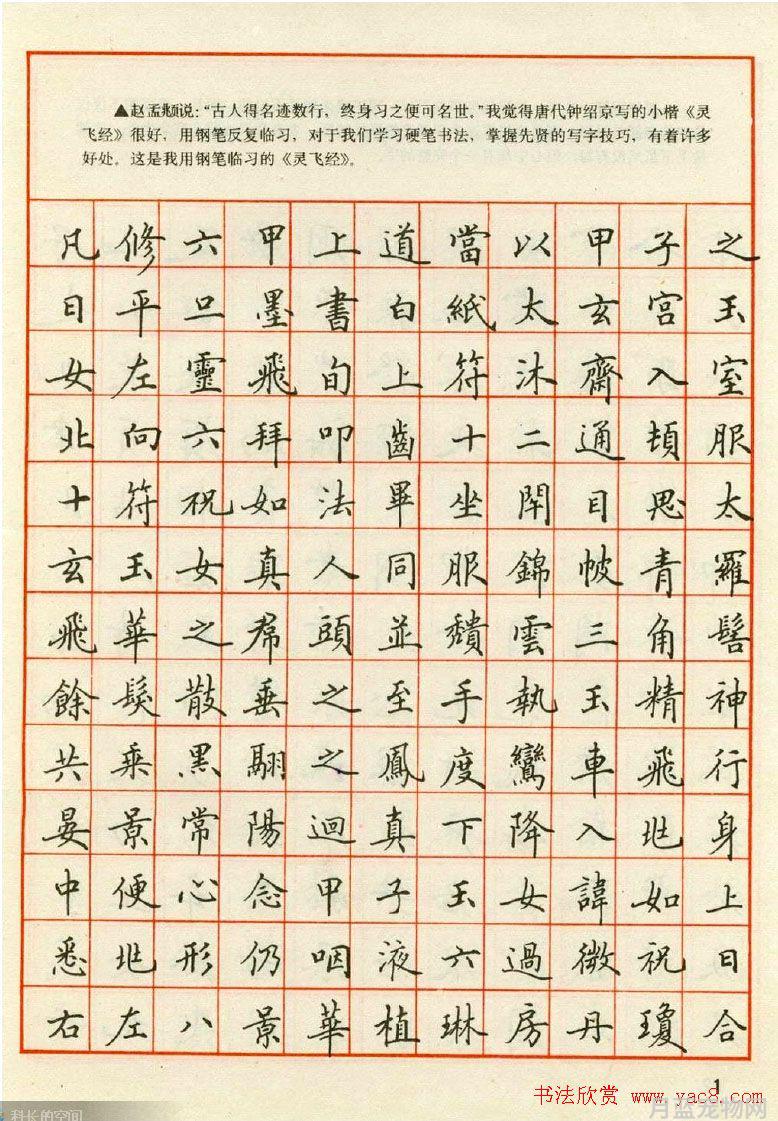 ▲赵孟頫说：“古人得名迹数行，终身习之便可名世。”我觉得唐代钟绍京写的小楷《灵
飞经》很好，用钢笔反复临习，对于我们学习硬笔书法，掌握先贤的写字技巧，有着许多
好处。这是我用钢笔临习的《灵飞经》。
凡修六甲上道當以甲子之
日平旦墨書白紙太玄宮玉
女左靈飛旬上符沐齋入室
北向六拜叩齒十二通頓服
十符祝如法畢坐閉目思太
玄玉女真人同服錦帔青羅
飛華之帬頭並頹雲三角髻
餘髮散垂之至手執玉精神
共乘黑翮之鳳度鸞車飛行
晏景常陽迴真下降入北身
中便心念甲子玉女諱如上
悉北形仍咽液六過微祝日
右左八景華植琳房丹瓊合
1
书法欣赏 www.yac8.com
月蓝宠物网
科长的空间